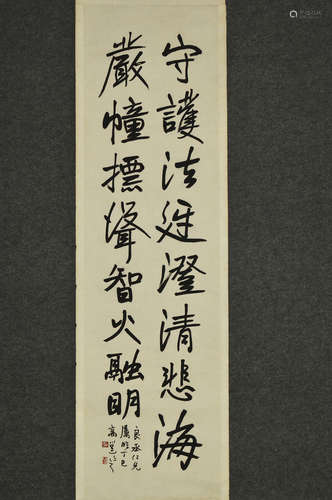 守護法延澄清悲海
嚴幢摽聳智火融明
良丞仁兄
屬時丁巳
高邕